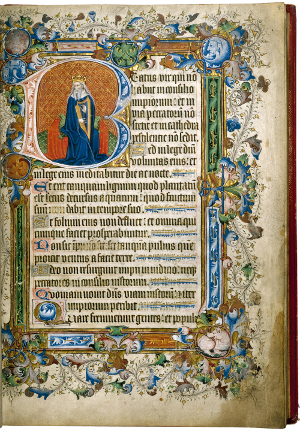 Beatus vir qui no
abiit in consilio
impiorum: et in
via peccatorū nō
stetit: et in cathedra
pestilencie nō sedit.
Sed in lege dnī
voluntas eius: et
in lege eius meditabitur die ac nocte.
Et erit tanquam lignum quod plantatū
est secus decursus aquarum: quod fructum
suum dabit in tempore suo.
Et folium eius non defluet: et omnia que
cunque faciet prosperabuntur.
Non sic impii non sic: set tanquam pulvis que
proicit ventus a facie terre.
Ideo non resurgunt impii in iudicio: neqz
peccatores in consilio iustorum.
Quoniam novit dn̄s viam iustorū: et iter
impiorum peribit.
Quare fremuerunt gentes: et populi